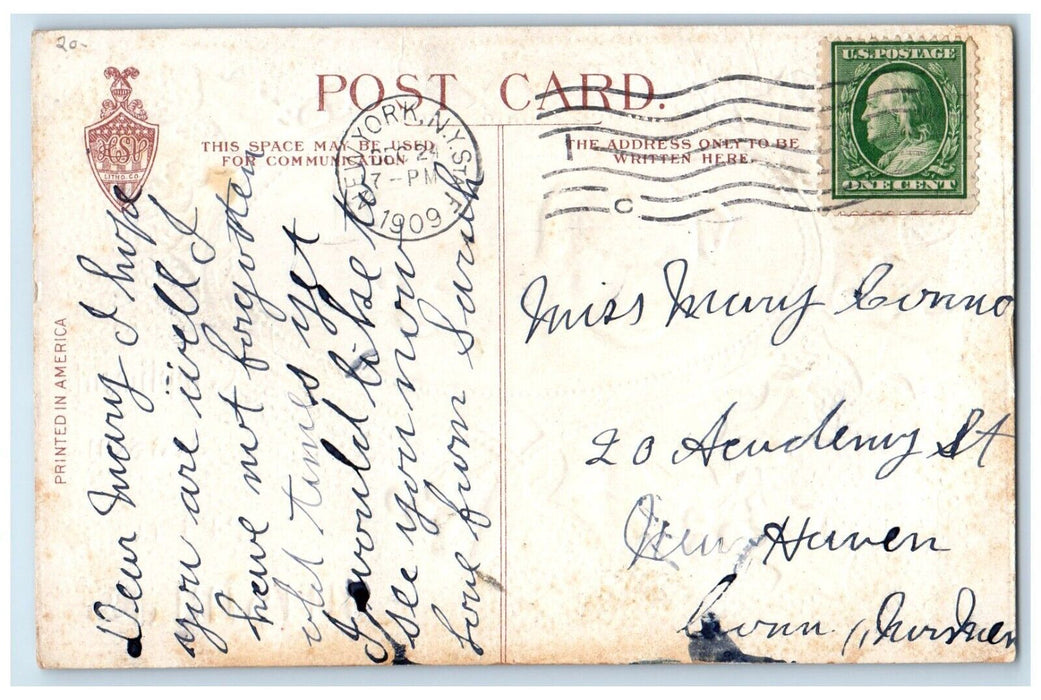 20-
POST CARD.
THIS SPACE MAY BE USED
FOR COMMUNICATION
THE ADDRESS ONLY TO BE
WRITTEN HERE.
HSV
LITHO. CO.
PRINTED IN AMERICA
NEW YORK, N.Y. STA. F
24
7-PM
1909
C
U.S. POSTAGE
ONE CENT
Dear Mary I hope
you are well I
have not forgotten
old times yet
I would like to
see you now
love from Sarah
Miss Mary Conno
20 Academy St
New Haven
Conn